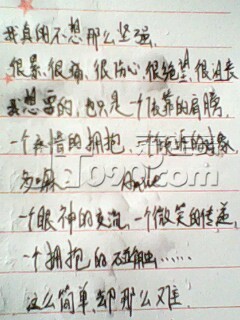 我真的不想那么坚强,
很累,很痛,很伤心,很绝望,很沮丧
我想要的,也只是一个依靠的肩膀,
一个疼惜的拥抱,一个
一个眼神的交流,一个微笑的传递,
一个拥抱的碰触……
这么简单,却那么难.